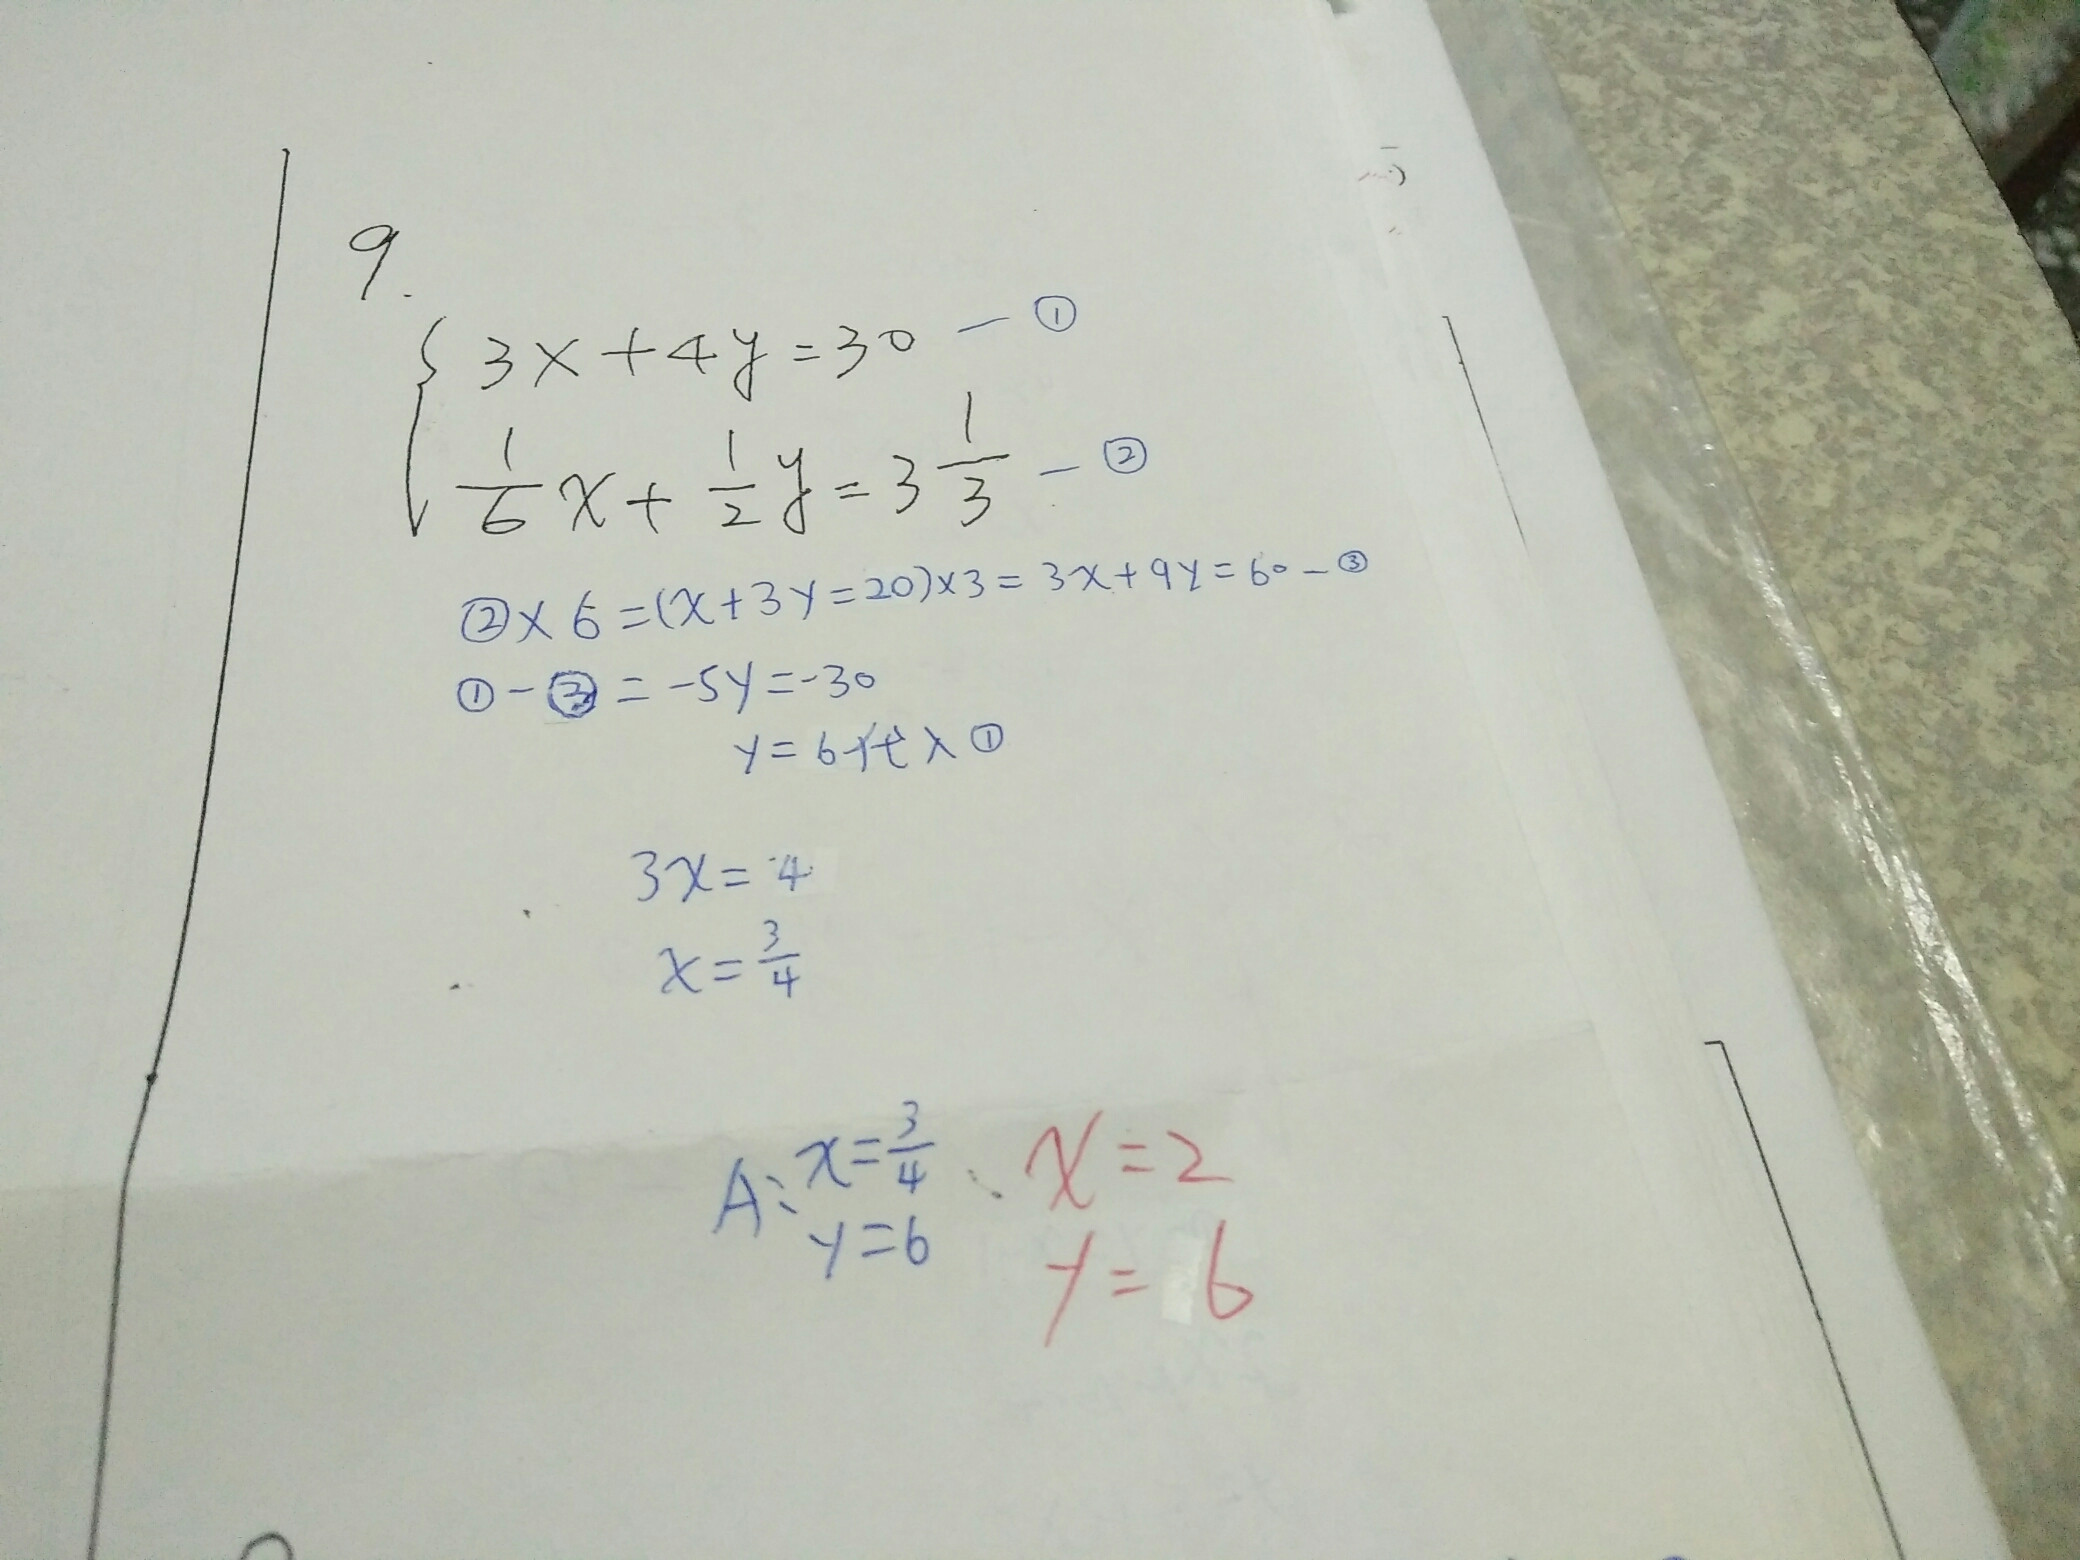 9.
3x+4y=30 — ①
1/6 x + 1/2 y = 3 1/3 — ②
②×6=(x+3y=20)×3=3x+9y=60—③
①-③=-5y=-30
y=6代入①
3x=4
x=3/4
A: x=3/4
y=6
x=2
y=6